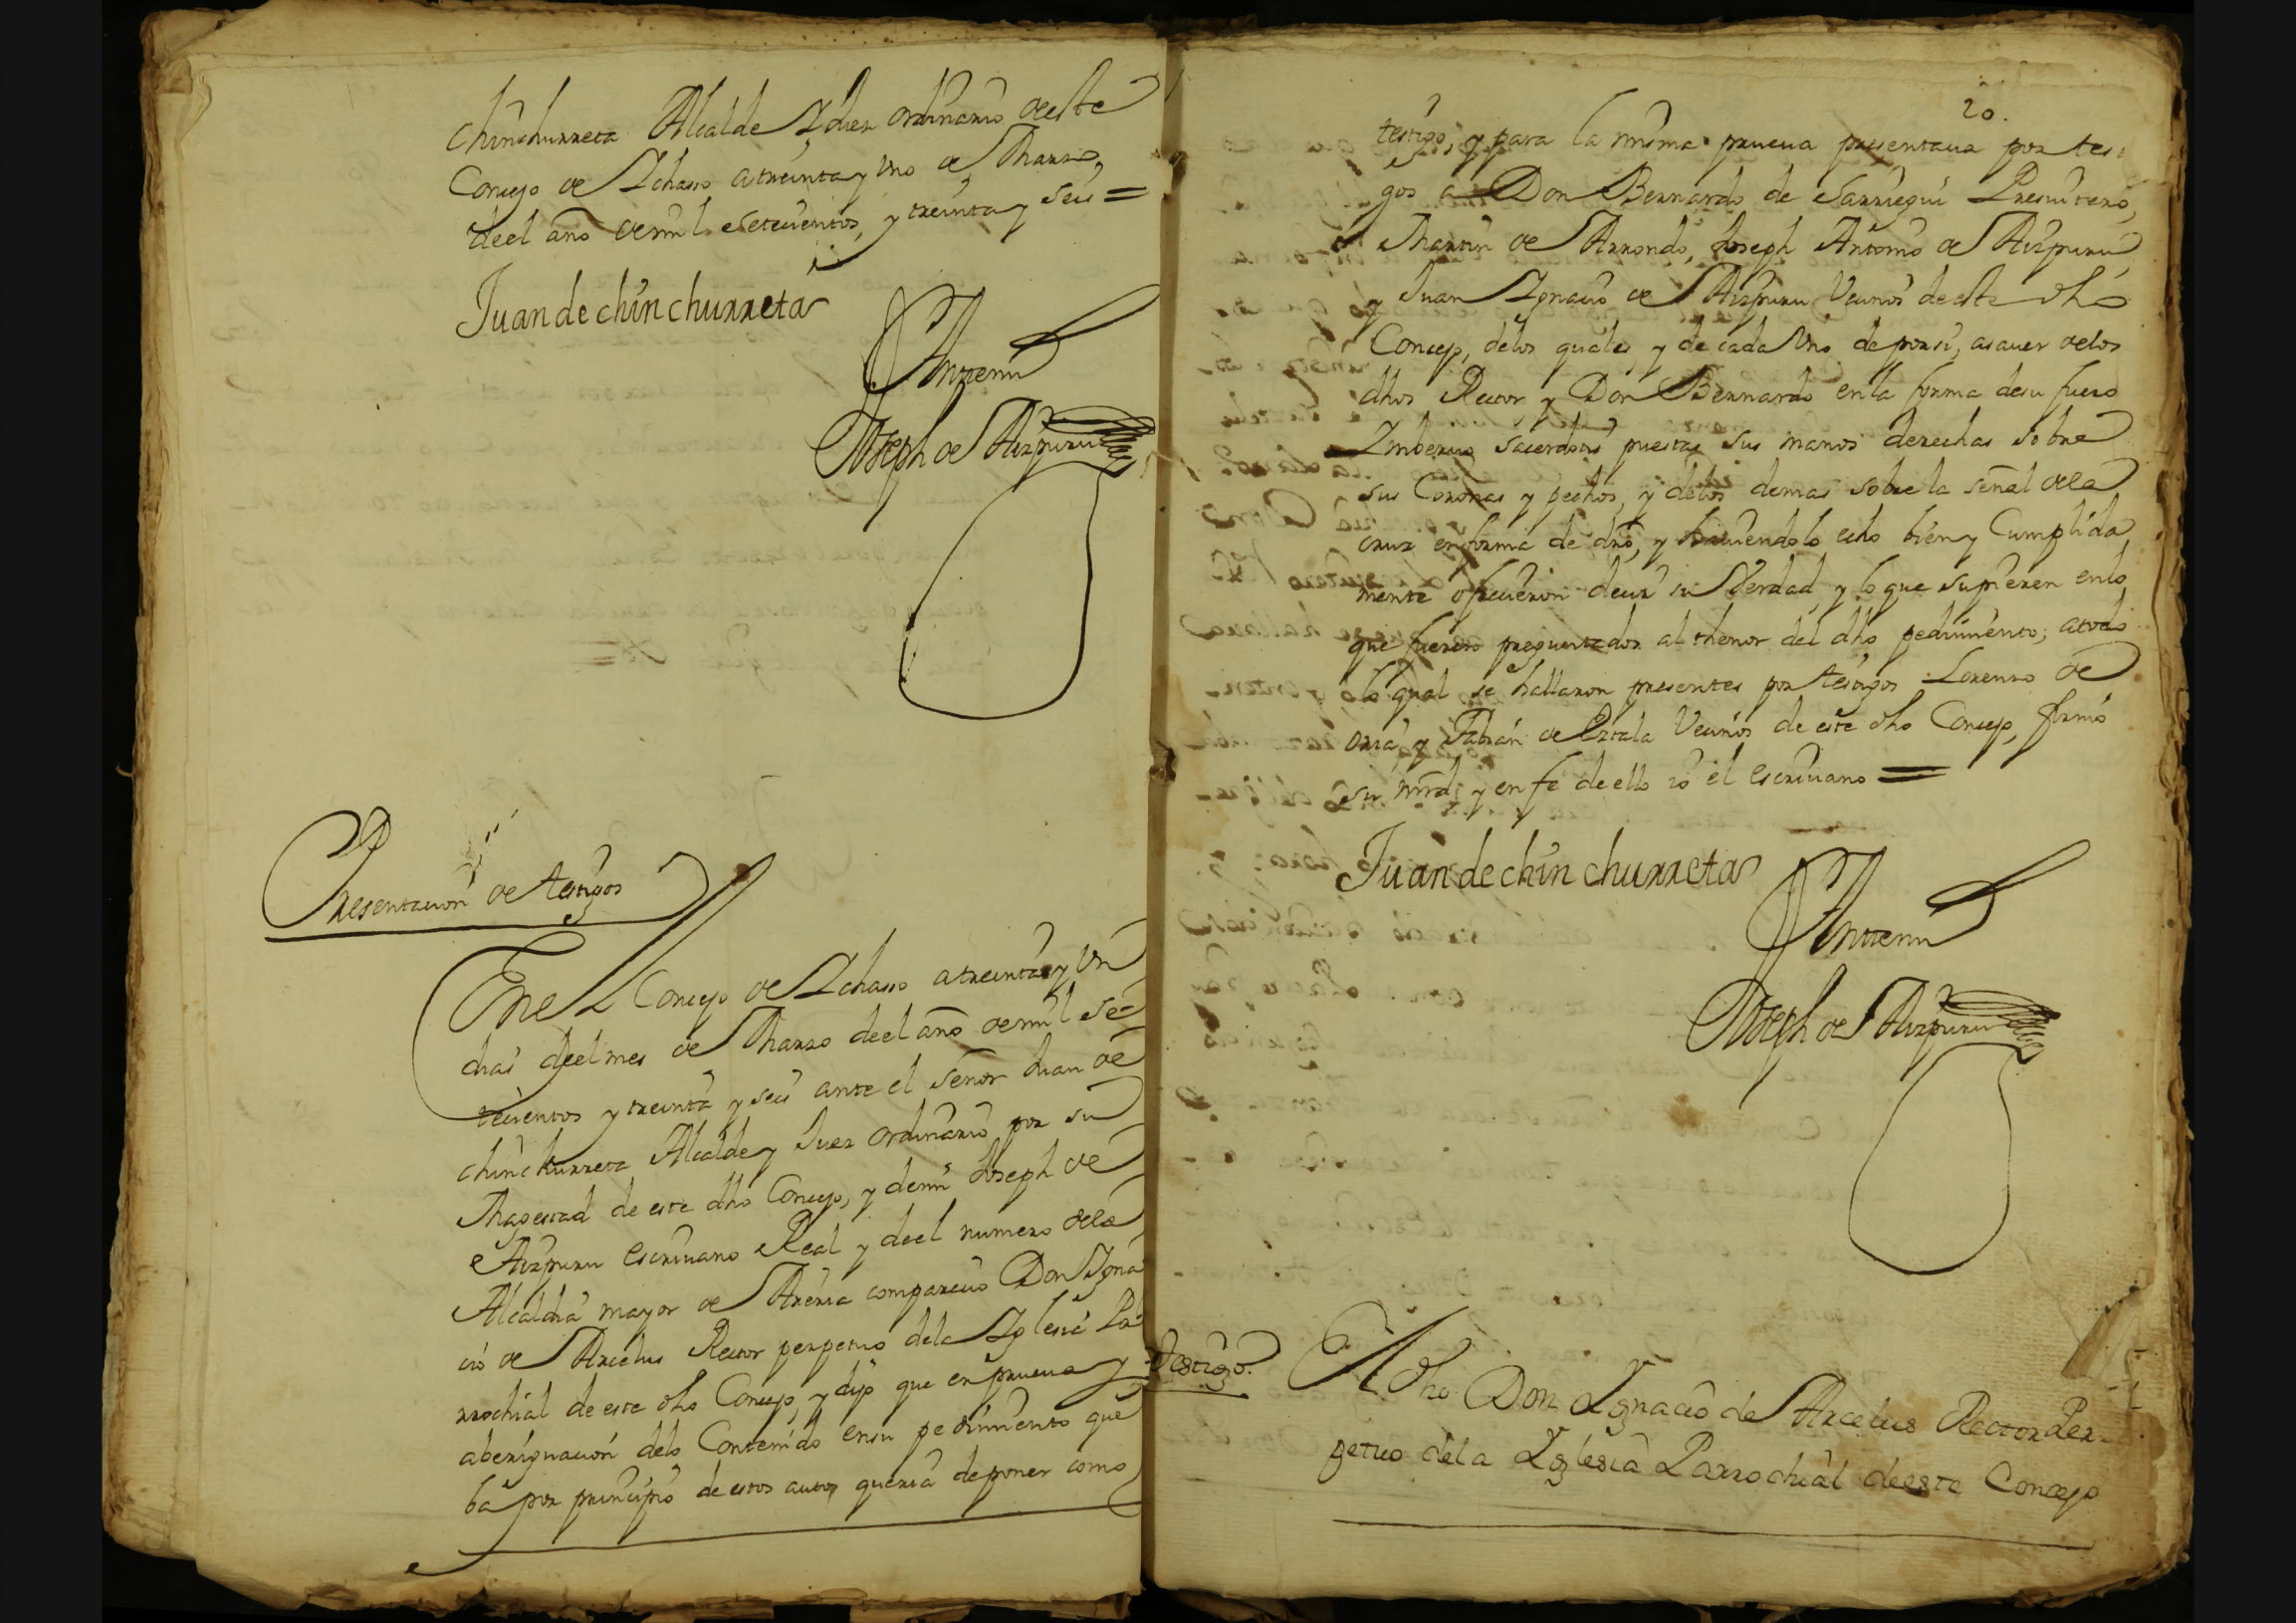 chinchurreta Alcalde y Juez ordinario de este
Concejo de Ichaso a treinta y uno de Marzo,
de el año de mil setecientos, y treinta y seis =
Juan de chinchurreta
Antemi
Joseph de Aizpuru
Presentacion de testigos
En el Concejo de Ichaso a treinta y un
dias de el mes de Marzo de el año de mil se-
tecientos y treinta y seis ante el señor Juan de
chinchurreta Alcalde y Juez ordinario por su
Magestad de este dho Concejo, y de mi Joseph de
Aizpuru escriuano Real y de el numero de la
Alcaldia mayor de Areria comparecio Don Igna
cio de Arcelus Rector perpetuo de la Iglesia Pa-
rrochial de este dho Concejo, y dijo que en prueua y
aberiguacion de lo Contenido en su pedimiento que
ba por principio de estos autos queria deponer como
20.
testigo, y para la misma prueua presentaua por testi
gos a Don Bernardo de Sarriegui Presuitero,
Martin de Arrondo, Joseph Antonio de Aizpuru
y Juan Ignacio de Aizpuru Vecinos de este dho
Concejo, de los quales y de cada uno de por si, a sauer de los
dhos Rector y Don Bernardo en la forma de su fuero
In verbo sacerdotis puestas sus manos derechas sobre
sus Coronas y pechos, y de los demas sobre la señal de la
cruz en forma de dro, y hauiendolo echo bien y Cumplida
mente ofrecieron decir su Verdad y lo que supieren en lo
que fueren preguntados al thenor del dho pedimiento; a todo
lo qual se hallaron presentes por testigos Lorenzo de
oria, y Fabian de Vecinos de este dho Concejo, firmó
su mrd, y en fe de ello io el escriuano =
Juan de chinchurreta
Antemi
Joseph de Aizpuru
Testigo.
El dho Don Ygnacio de Arcelus Rector Per-
petuo de la Yglesia Parrochial de este Concejo